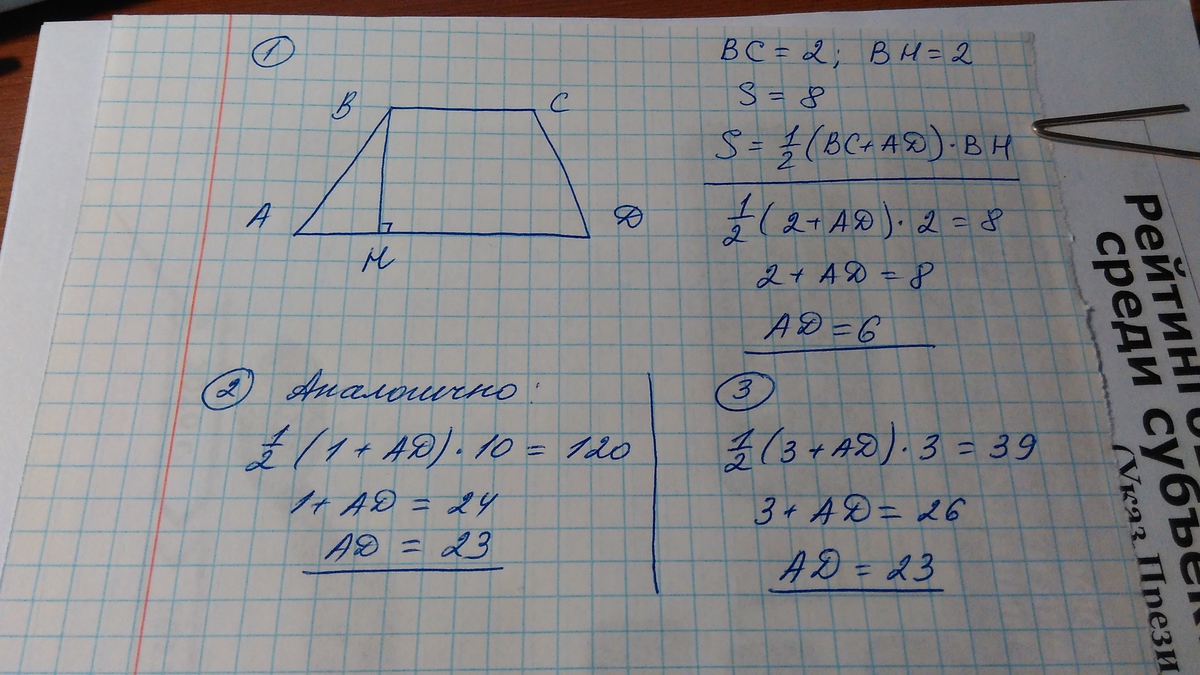 1
B C
A H D
BC = 2; BH = 2
S = 8
S = 1/2 (BC + AD) · BH
1/2 (2 + AD) · 2 = 8
2 + AD = 8
AD = 6
2 Аналогично:
1/2 (1 + AD) · 10 = 120
1 + AD = 24
AD = 23
3
1/2 (3 + AD) · 3 = 39
3 + AD = 26
AD = 23
среди субъек